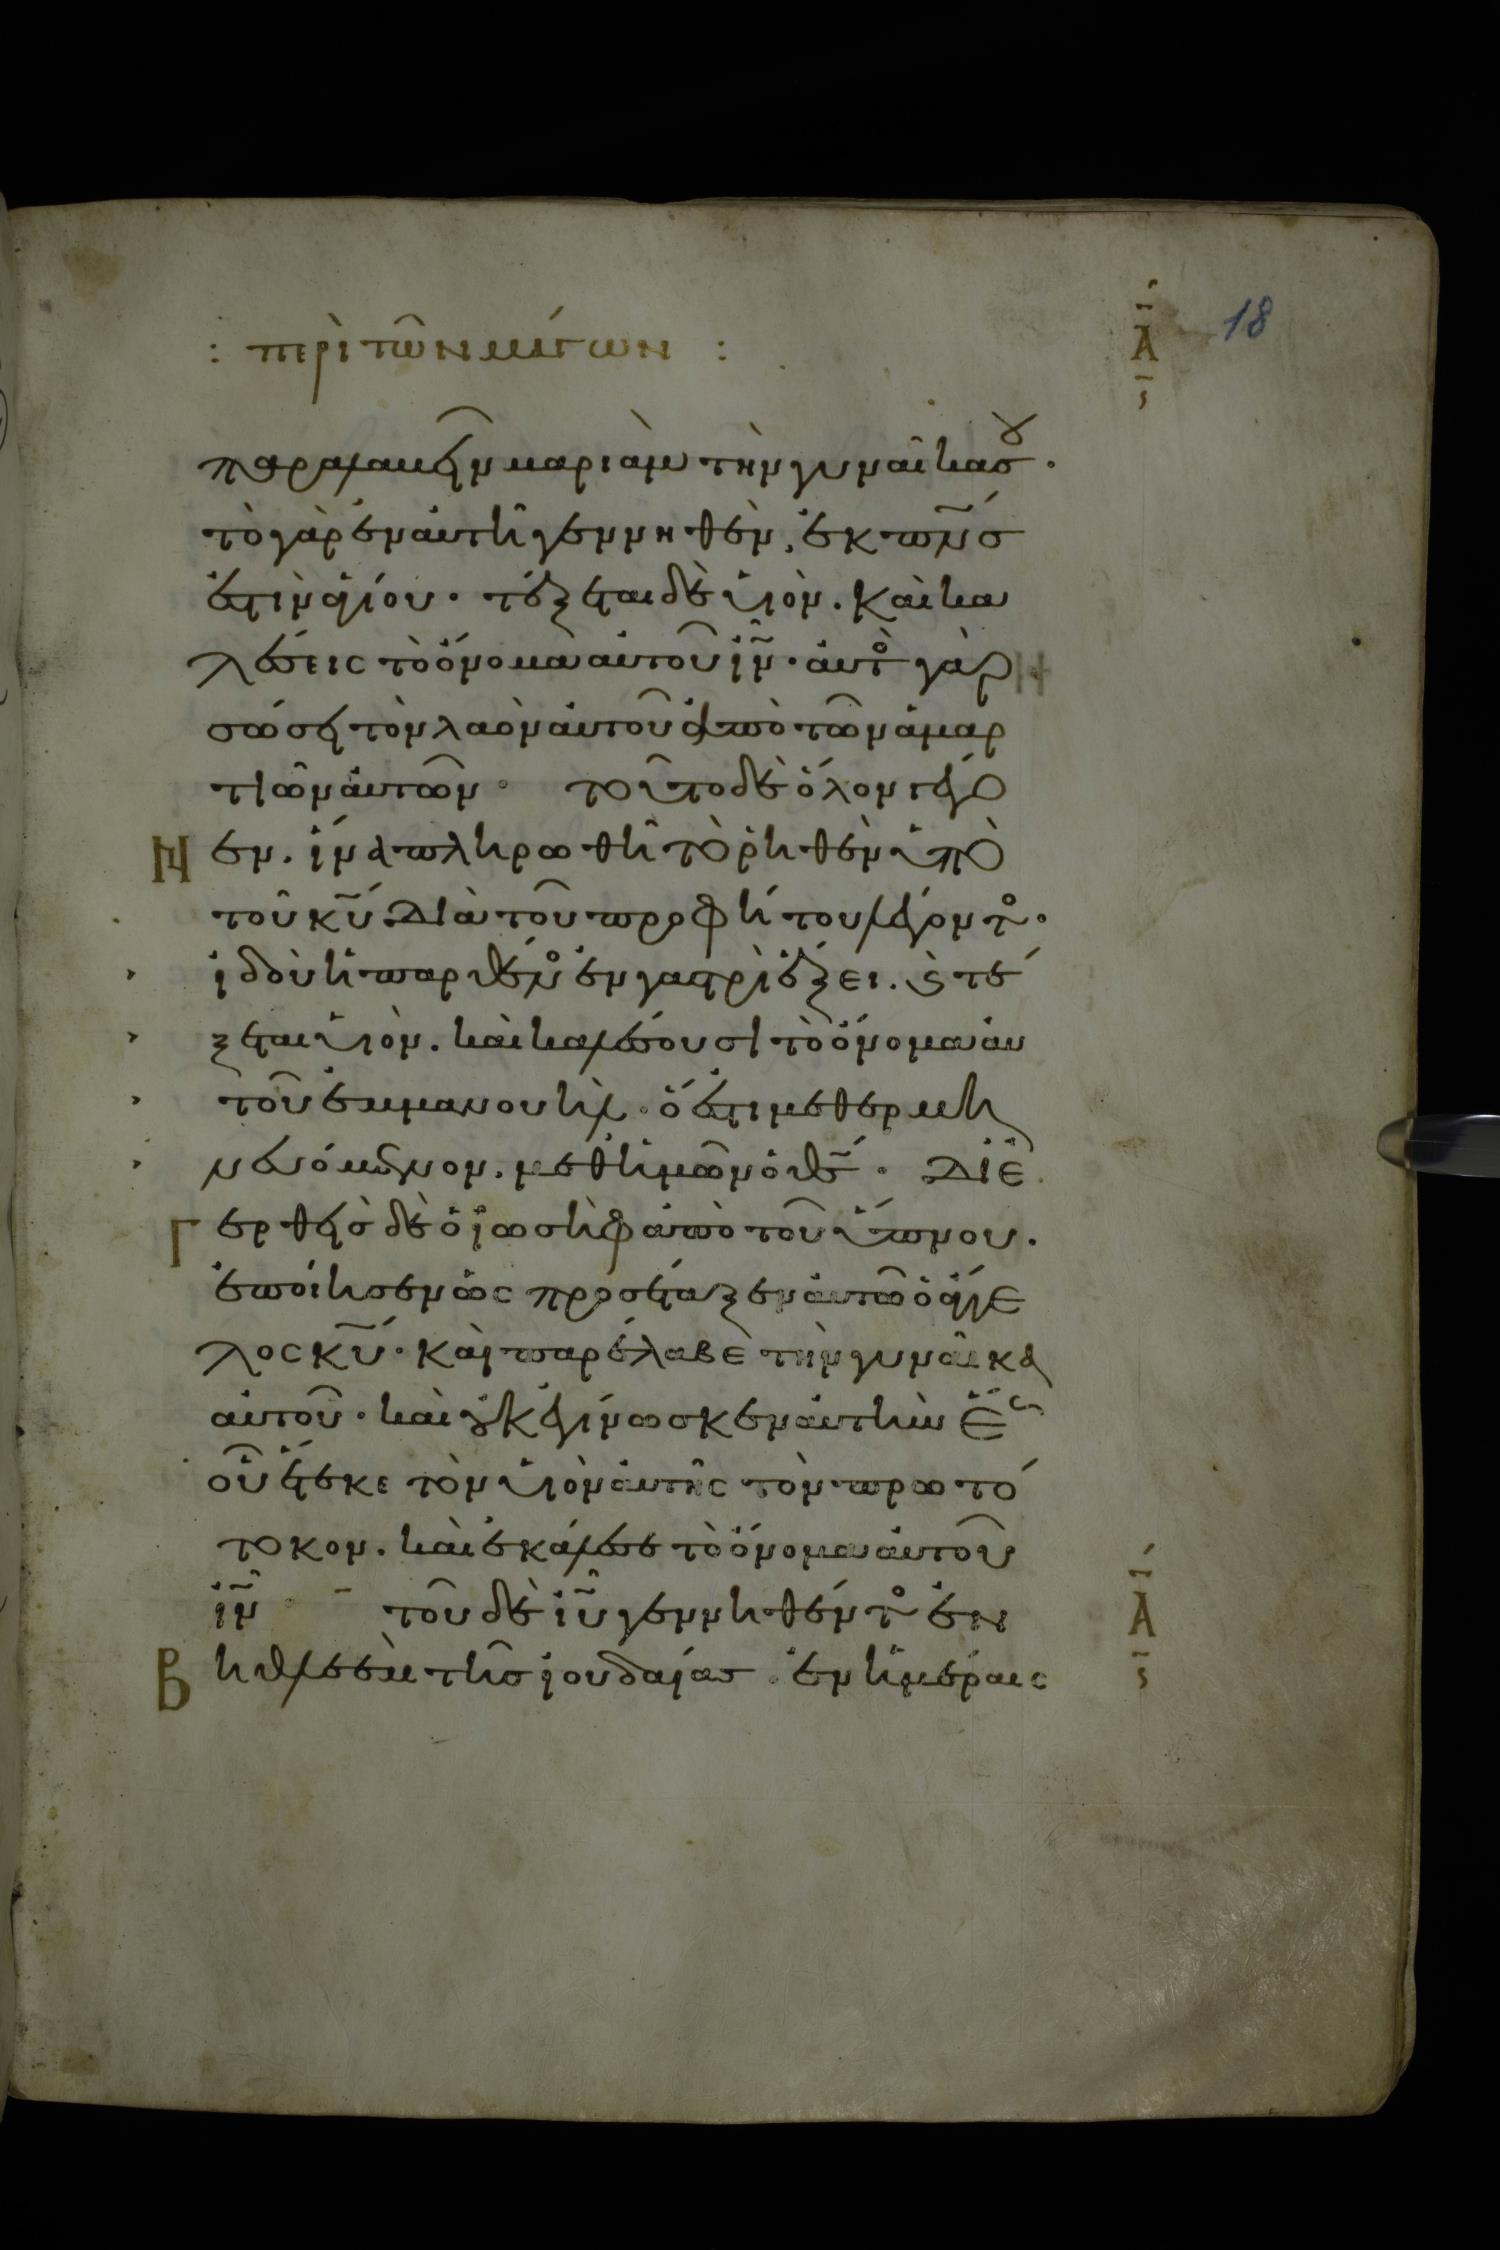 : περὶ τῶν μάγων :
Ι Α Ϛ
18
παραλαβεῖν μαριὰμ τὴν γυναῖκα σου.
τὸ γὰρ ἐν ἀυτῆ γεννηθὲν, ἐκ πν̅ς
ἐστὶν ἁγίου. τέξεται δὲ ὑιὸν. καὶ κα
λέσεις τὸ ὄνομα ἀυτοῦ ἰν̅. ἀυτὸς γὰρ
σώσει τὸν λαὸν ἀυτοῦ ἀπὸ τῶν ἁμαρ
τιῶν ἀυτῶν. τοῦτο δὲ ὅλον γέγο
Ν εν. ἵνα πληρωθῆ τὸ ῥηθὲν ὑπὸ
τοῦ κ̅υ διὰ τοῦ προφήτου λέγοντος.
ἰδοὺ ἡ παρθένος ἐν γαστρὶ ἕξει. ϗ τέ
ξεται ὑιὸν. καὶ καλέσουσι τὸ ὄνομα ἀυ
τοῦ ἐμμανουὴλ. ὅ ἐστι μεθερμη
νευόμενον. μεθ ἡμῶν ὁ θ̅ς. Διε
Γ ερθεὶς δὲ ὁ ἰωσὴφ ἀπὸ τοῦ ὕπνου.
ἐποίησεν ὡς προσέταξεν ἀυτῶ ὁ ἄγγε
λος κ̅υ. καὶ παρέλαβε τὴν γυναῖκα
ἀυτοῦ. καὶ ουκ ἐγίνωσκεν ἀυτὴν ἕως
οὗ ἔτεκε τὸν ὑιὸν ἀυτῆς τὸν πρωτό
τοκον. καὶ ἐκάλεσε τὸ ὄνομα ἀυτοῦ
ἰν̅ τοῦ δὲ ἰυ̅ γεννηθέντος ἐν
Ι Α Ϛ
Β ηθλεὲμ τῆς ἰουδαίας. ἐν ἡμέραις